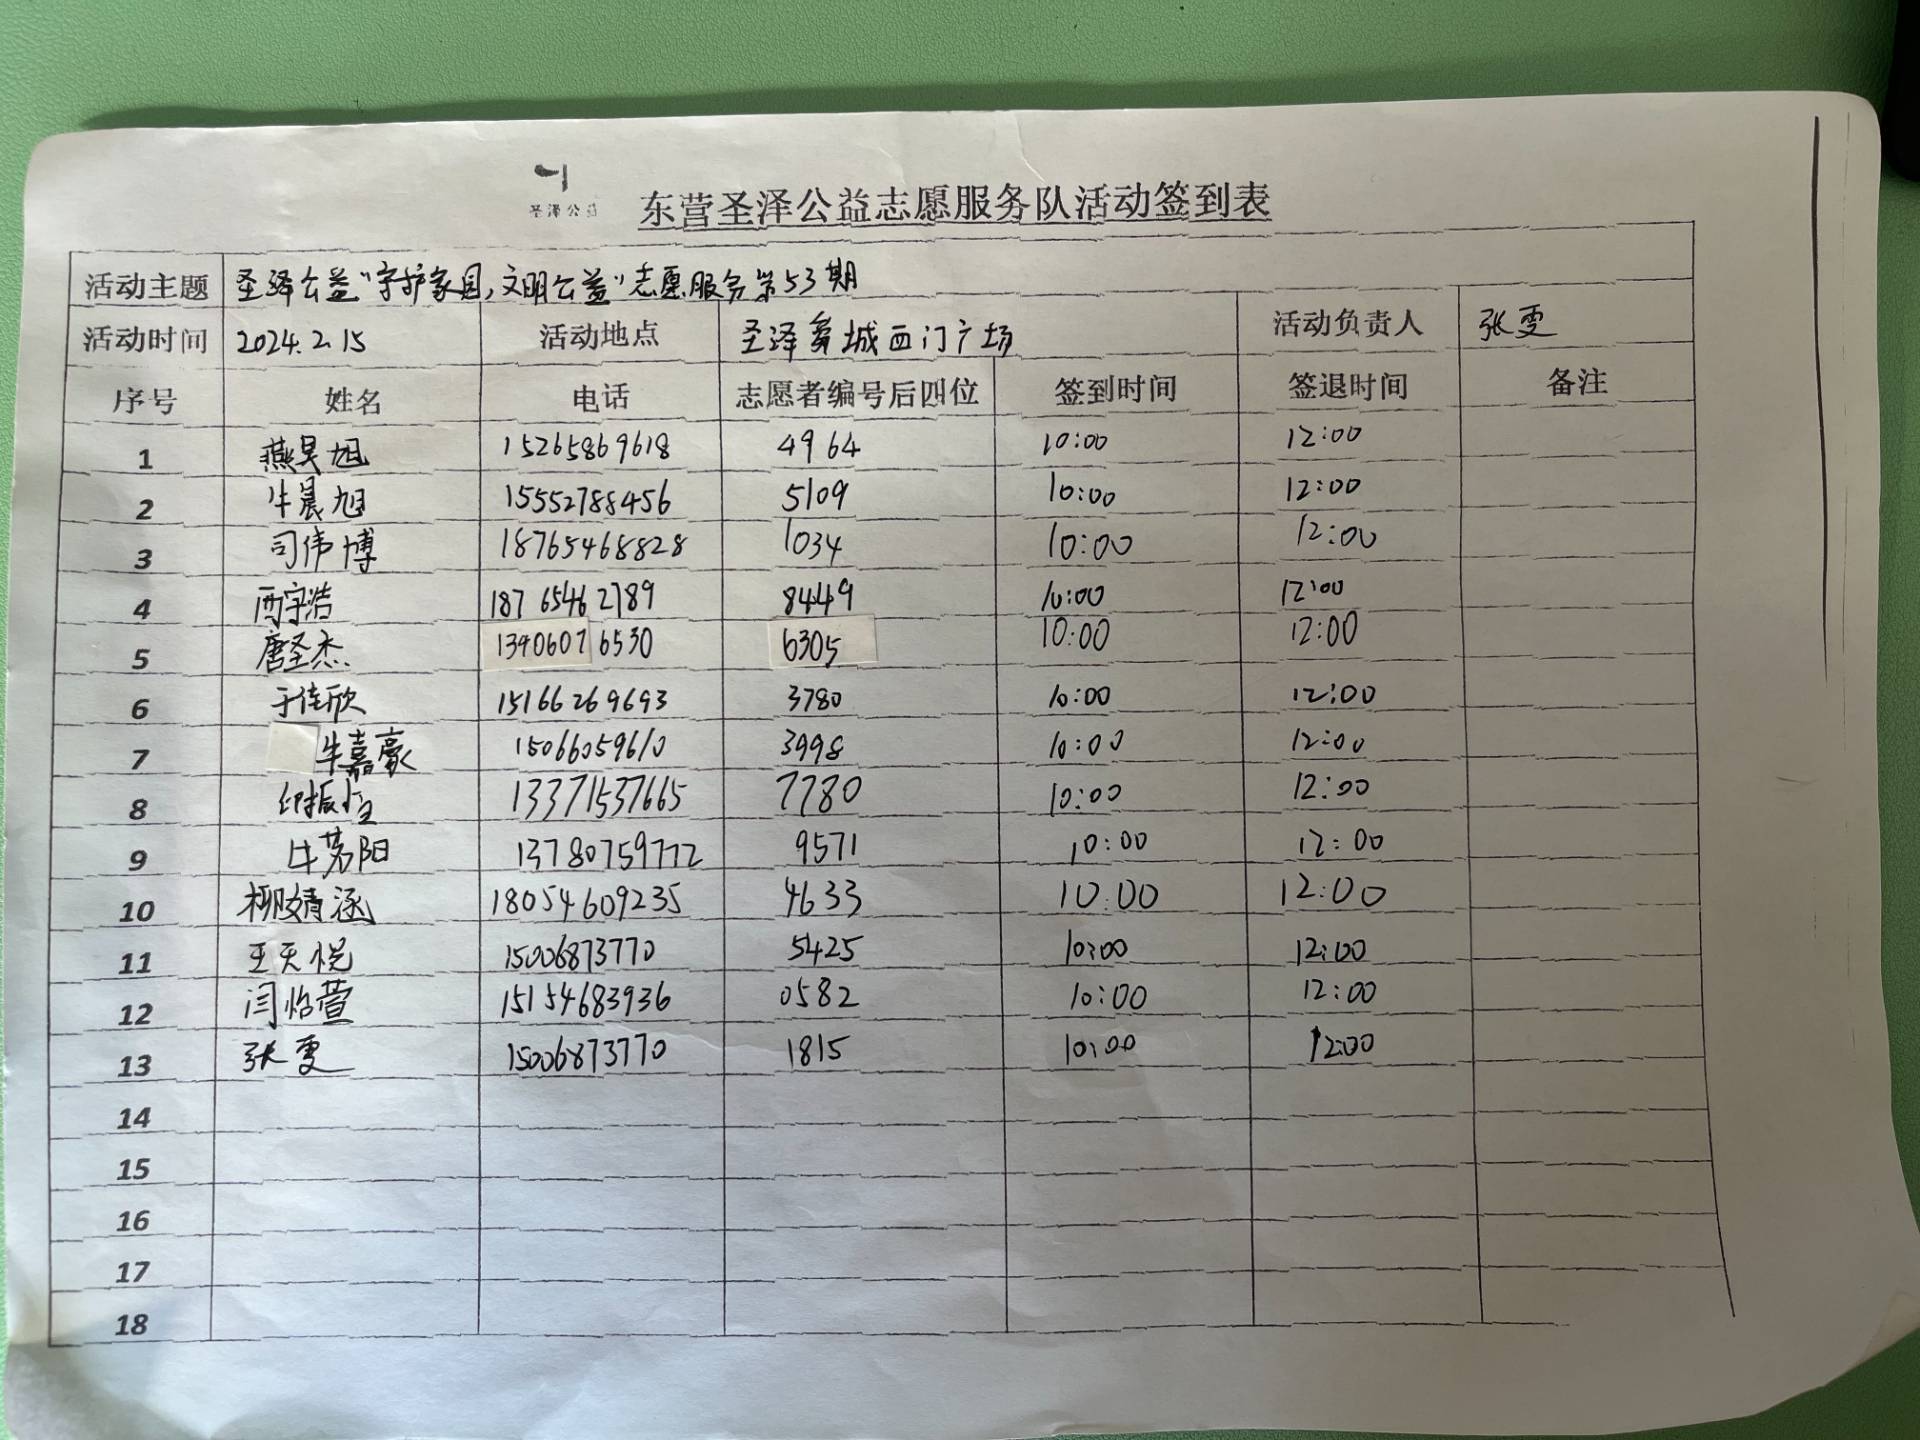 圣泽公益
东营圣泽公益志愿服务队活动签到表
活动主题 圣泽公益"守护家园,文明公益"志愿服务第53期
活动时间 2024.2.15 活动地点 圣泽 城西门广场 活动负责人 张雯
序号 姓名 电话 志愿者编号后四位 签到时间 签退时间 备注
1 燕昊旭 15265869618 4964 10:00 12:00
2 牛晨旭 15552788456 5109 10:00 12:00
3 司伟博 18765468828 1034 10:00 12:00
4 西宇浩 18765462789 8449 10:00 12:00
5 唐圣杰 13406076530 6305 10:00 12:00
6 于佳欣 15166269693 3780 10:00 12:00
7 牛嘉豪 15066059610 3998 10:00 12:00
8 13371537665 7780 10:00 12:00
9 牛茗阳 13780759772 9571 10:00 12:00
10 柳婧涵 18054609235 4633 10:00 12:00
11 王天悦 15006873770 5425 10:00 12:00
12 闫怡萱 15154683936 0582 10:00 12:00
13 张雯 15006873770 1815 10:00 12:00
14
15
16
17
18